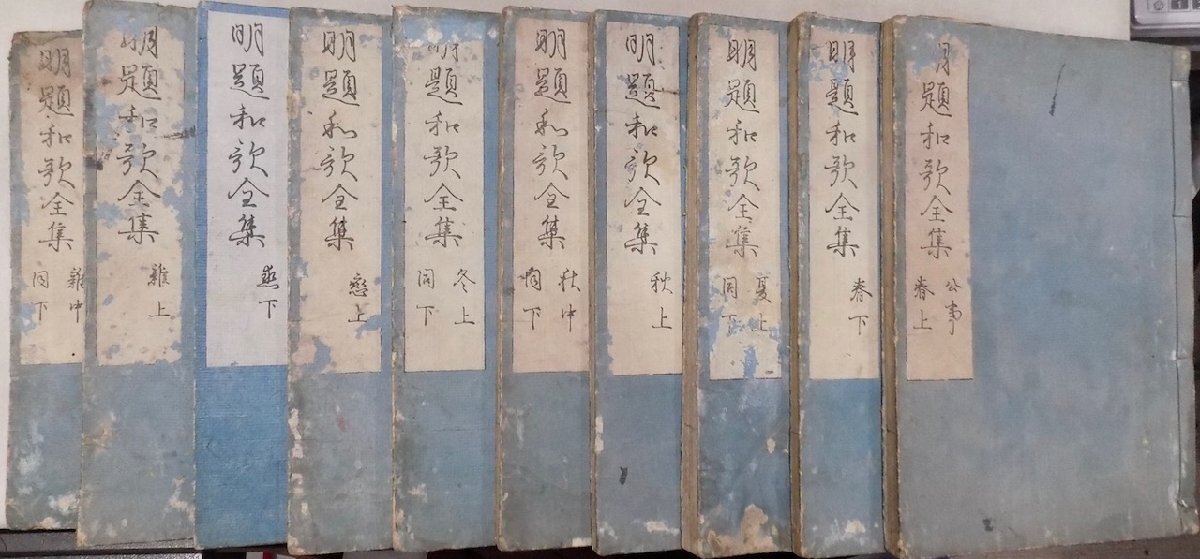 明題和歌全集
公事
春上
明題和歌全集
春下
明題和歌全集
夏上
同下
明題和歌全集
秋上
明題和歌全集
秋中
同下
明題和歌全集
冬上
同下
明題和歌全集
戀上
明題和歌全集
戀下
明題和歌全集
雜上
明題和歌全集
雜中
同下